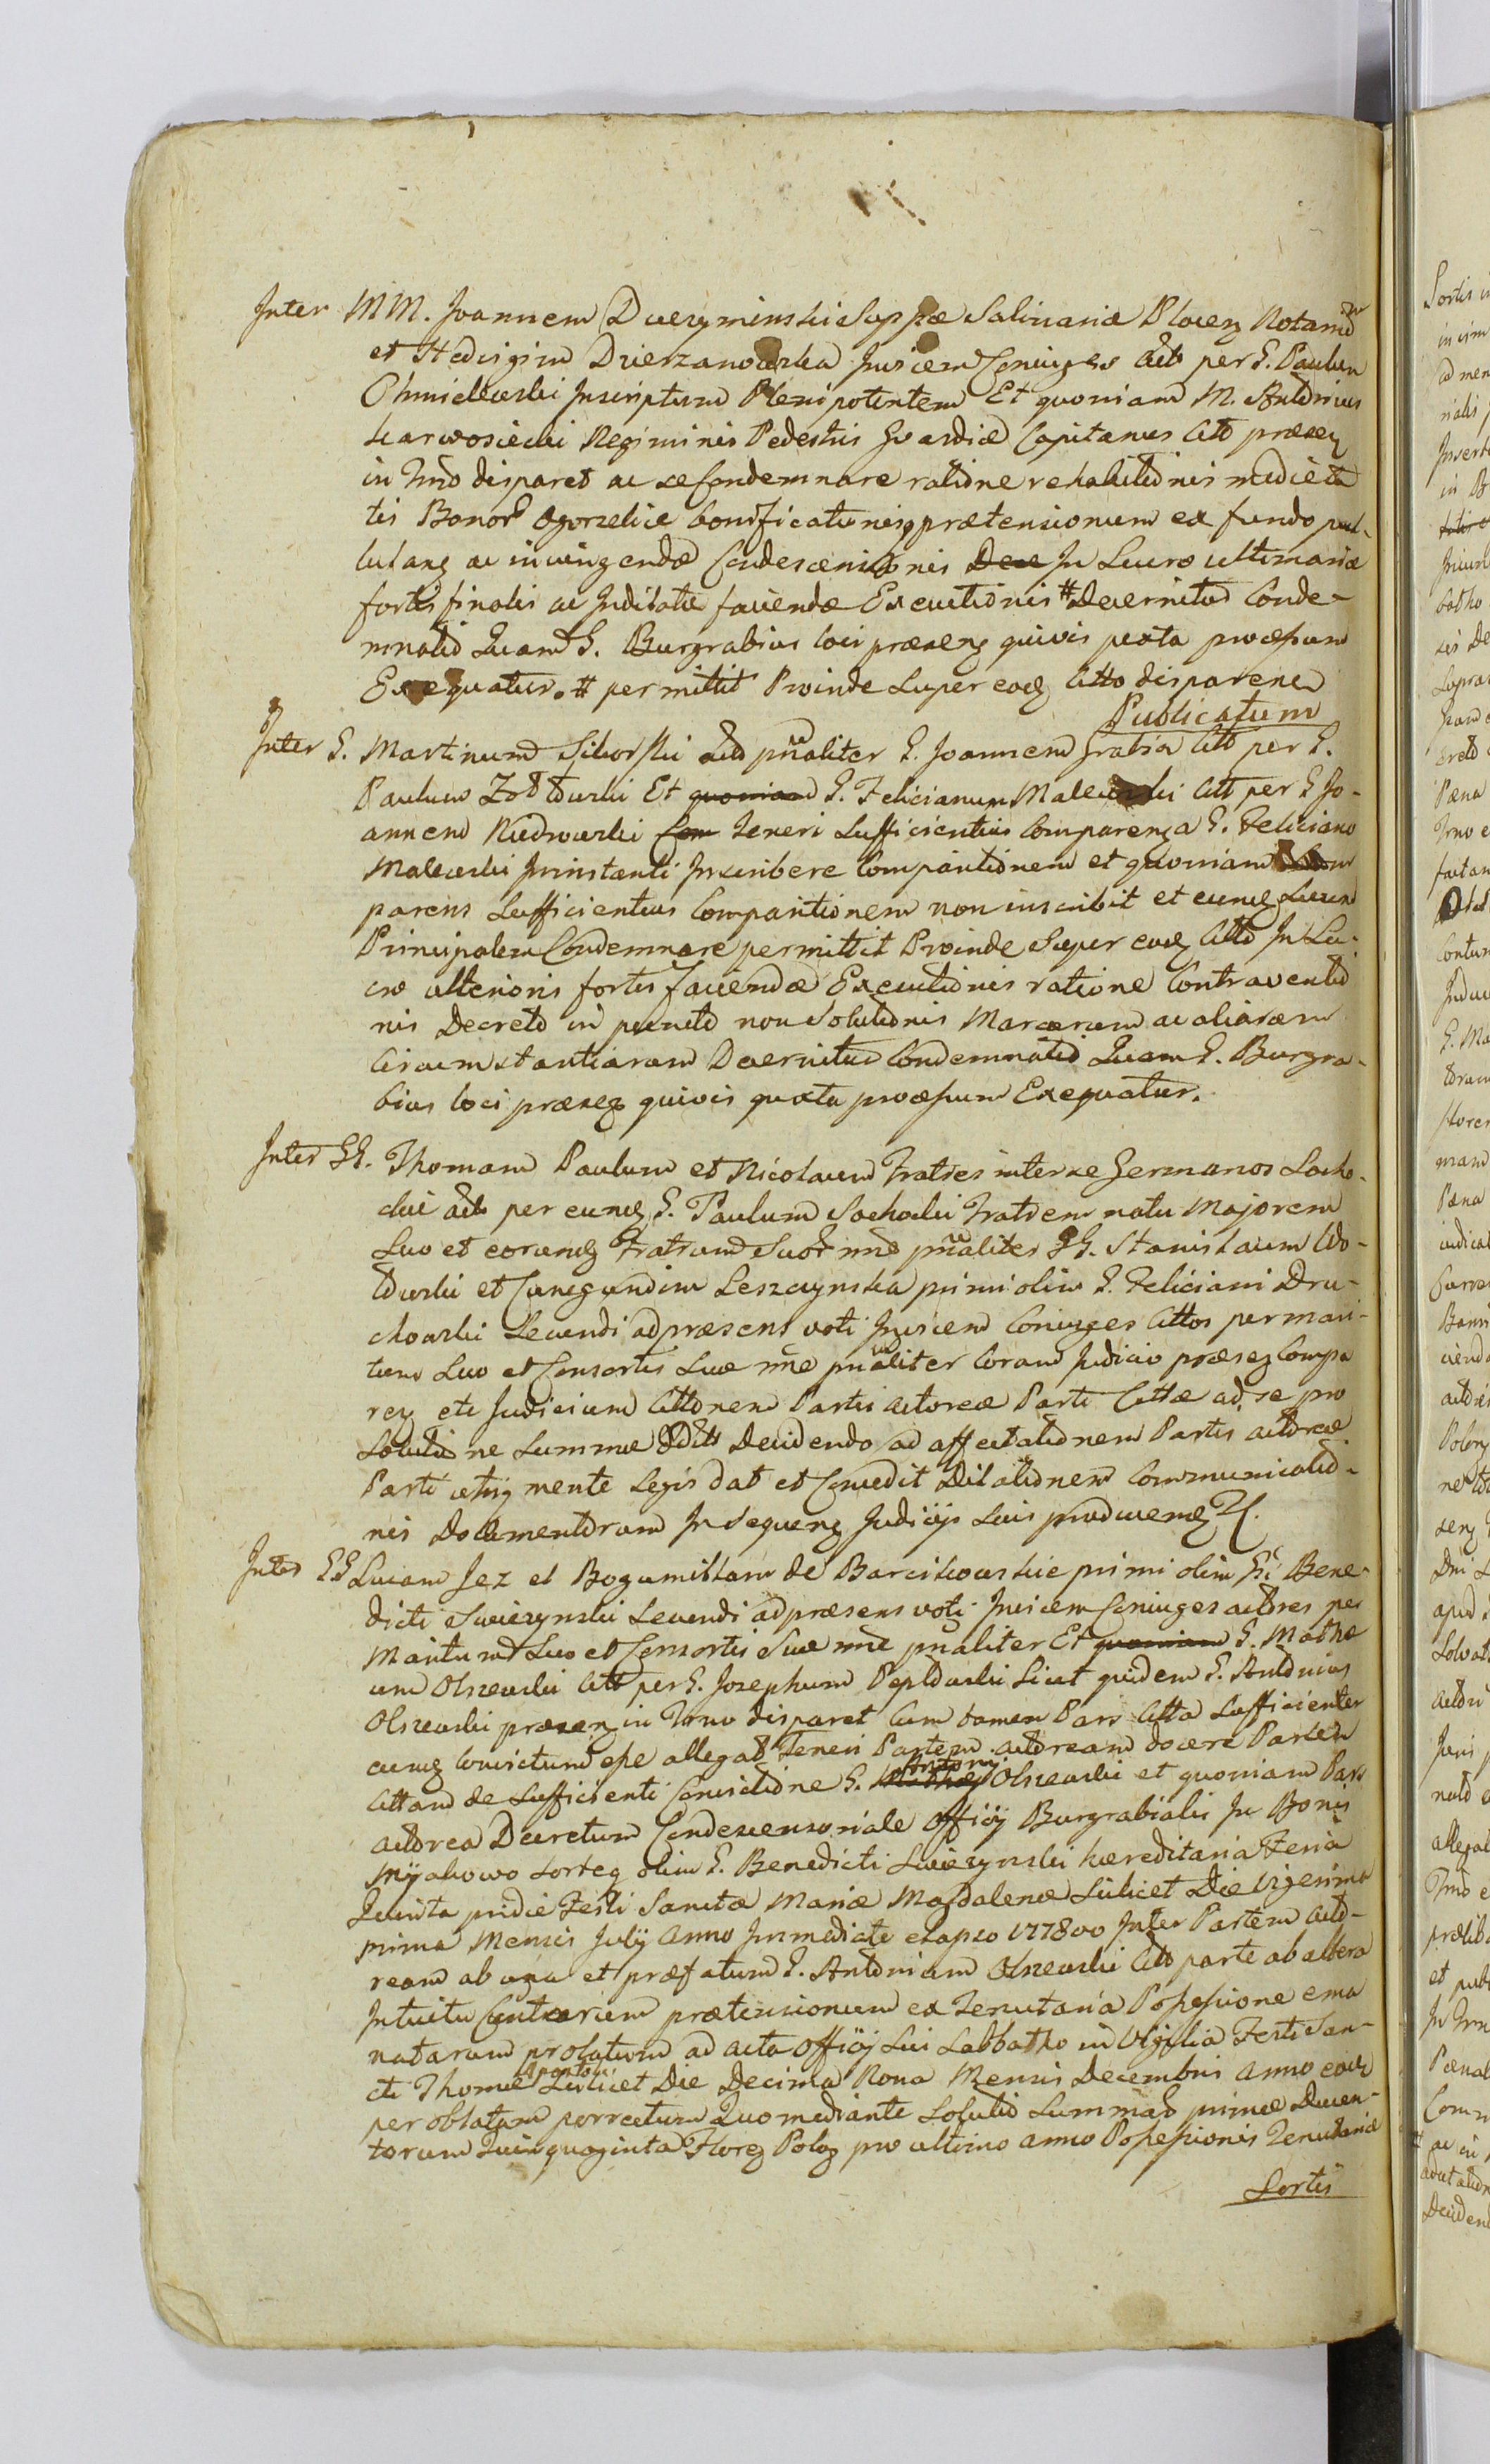 Inter MM. Joannem Dwezyminski Suppæ Salinariæ Plocen Notarium
et Hedvigim Dzierzanowska Invicem Coniuges Act per G. Paulum
Chmielewski Inscriptum Plenipotentem Et quoniam M. Antonius
Karwosiecki Regiminis Pedestris Gvardiæ Capitaneus Citt præsen
in Trno disparet ac se Condemnare ratione rehabilitonis medieta
tis Bonor Ogorzelice bonificationisq prætensionum ex fundo pul-
lulang ac iniungendæ Condescensionis In Lucro ultimariæ
fortis finalis ac Inditatæ faciendæ Executionis # Decernitur Conde-
mnatio Quam G. Burgrabius loci præsens quivis juxta processum
Exequatur. # permittit Proinde Super eod Citto disparene
Publicatum
Inter G. Martinum Siborski Act pnaliter G. Joannem Grabia Citt per G.
Paulum Zoltowski Et quoniam G. Felicianum Malewski Citt per G Jo-
annem Rudowski Com Teneri Sufficientius Comparenga G. Feliciano
Malewski Ininstanti Inscribere Comparitionem et quoniam
parens Sufficientius Comparitionem non inscribit et eund Suum
Principalem Condemnare permittit Proinde Super eod Citto In Lu-
cro ulterioris fortis faciendæ Executionis ratione Contraventio
nis Decreto in puncto non Solutionis Marcarum ac aliarum
Circumstantiarum Decernitur Condemnatio Quam G. Burgra-
bius loci præsens quivis juxta processum Exequatur.
Inter GG. Thomam Paulum et Nicolaum Fratres inter se Germanos Socho-
cki Act per eund G. Paulum Sochocki Fratrem natu Majorem
Suo et eorund Fratrum Suor nne pnaliter GG. Stanislaum Wo-
towski et Cunegundim Leszczynska primi olim G. Feliciani Dru-
chowski Secundi ad præsens voti Invicem Coniuges Cittos per mari-
tum Suo et Consortis Suæ nne pnaliter Coram Judicio præsen Compa
ren etc Judicium Cittonem Partis actoreæ Parti Cittæ ad se pro
Solutione Summæ Decidendo ad affectationem Partis actoreæ
Parti utriq mente Legis dat et Concedit Dilationem Communicatio-
nis Documentorum In Sequeng Judicijs Suis producend
Inter GG Lucam Jez et Bogumillam de Barcikowskie primi olim Gi Bene-
dicti Swiezynski Secundi ad præsens voti Invicem Coniuges actores per
Maritum Suo et Consortis Suæ nne pnaliter Et quoniam G. Mathæ
um Olszewski Citt per G. Josephum Peplowski Sicut quidem G. Antonius
Olszewski præsen in Trno disparet Cum tamen Pars Citta Sufficienter
eund Convictum esse allegat Teneri Partem actoream docere Partem
Cittam de Sufficienti Convictione G. Antonij Olszewski et quoniam Pars
actorea Decretum Condescensoriale Officij Burgrabialis In Bonis
Mijakowo Sorteq olim G. Benedicti Swiezynski hæreditaria Feria
Quinta pridie Festi Sanctæ Mariæ Magdalenæ Scilicet Die Vigesima
prima Mensis Julij Anno Immediate elapso 177800 Inter Partem acto-
ream ab una et præfatum G. Antonium Olszewski Citt parte ab altera
Intuitu Certarum prætensionum ex Tenutaria Possessione ema
natarum prolatum ad acta Officij Sui Sabbatho in Vigilia Festi San-
cti Thomæ Apostoli Scilicet Die Decima Nona Mensis Decembris Anno eod
per oblatam porrectum Quo mediante Solutio Summar primæ Ducen-
torum Quinquaginta Floreg Polog pro ultimo anno Possessionis Tenutariæ
Sortis